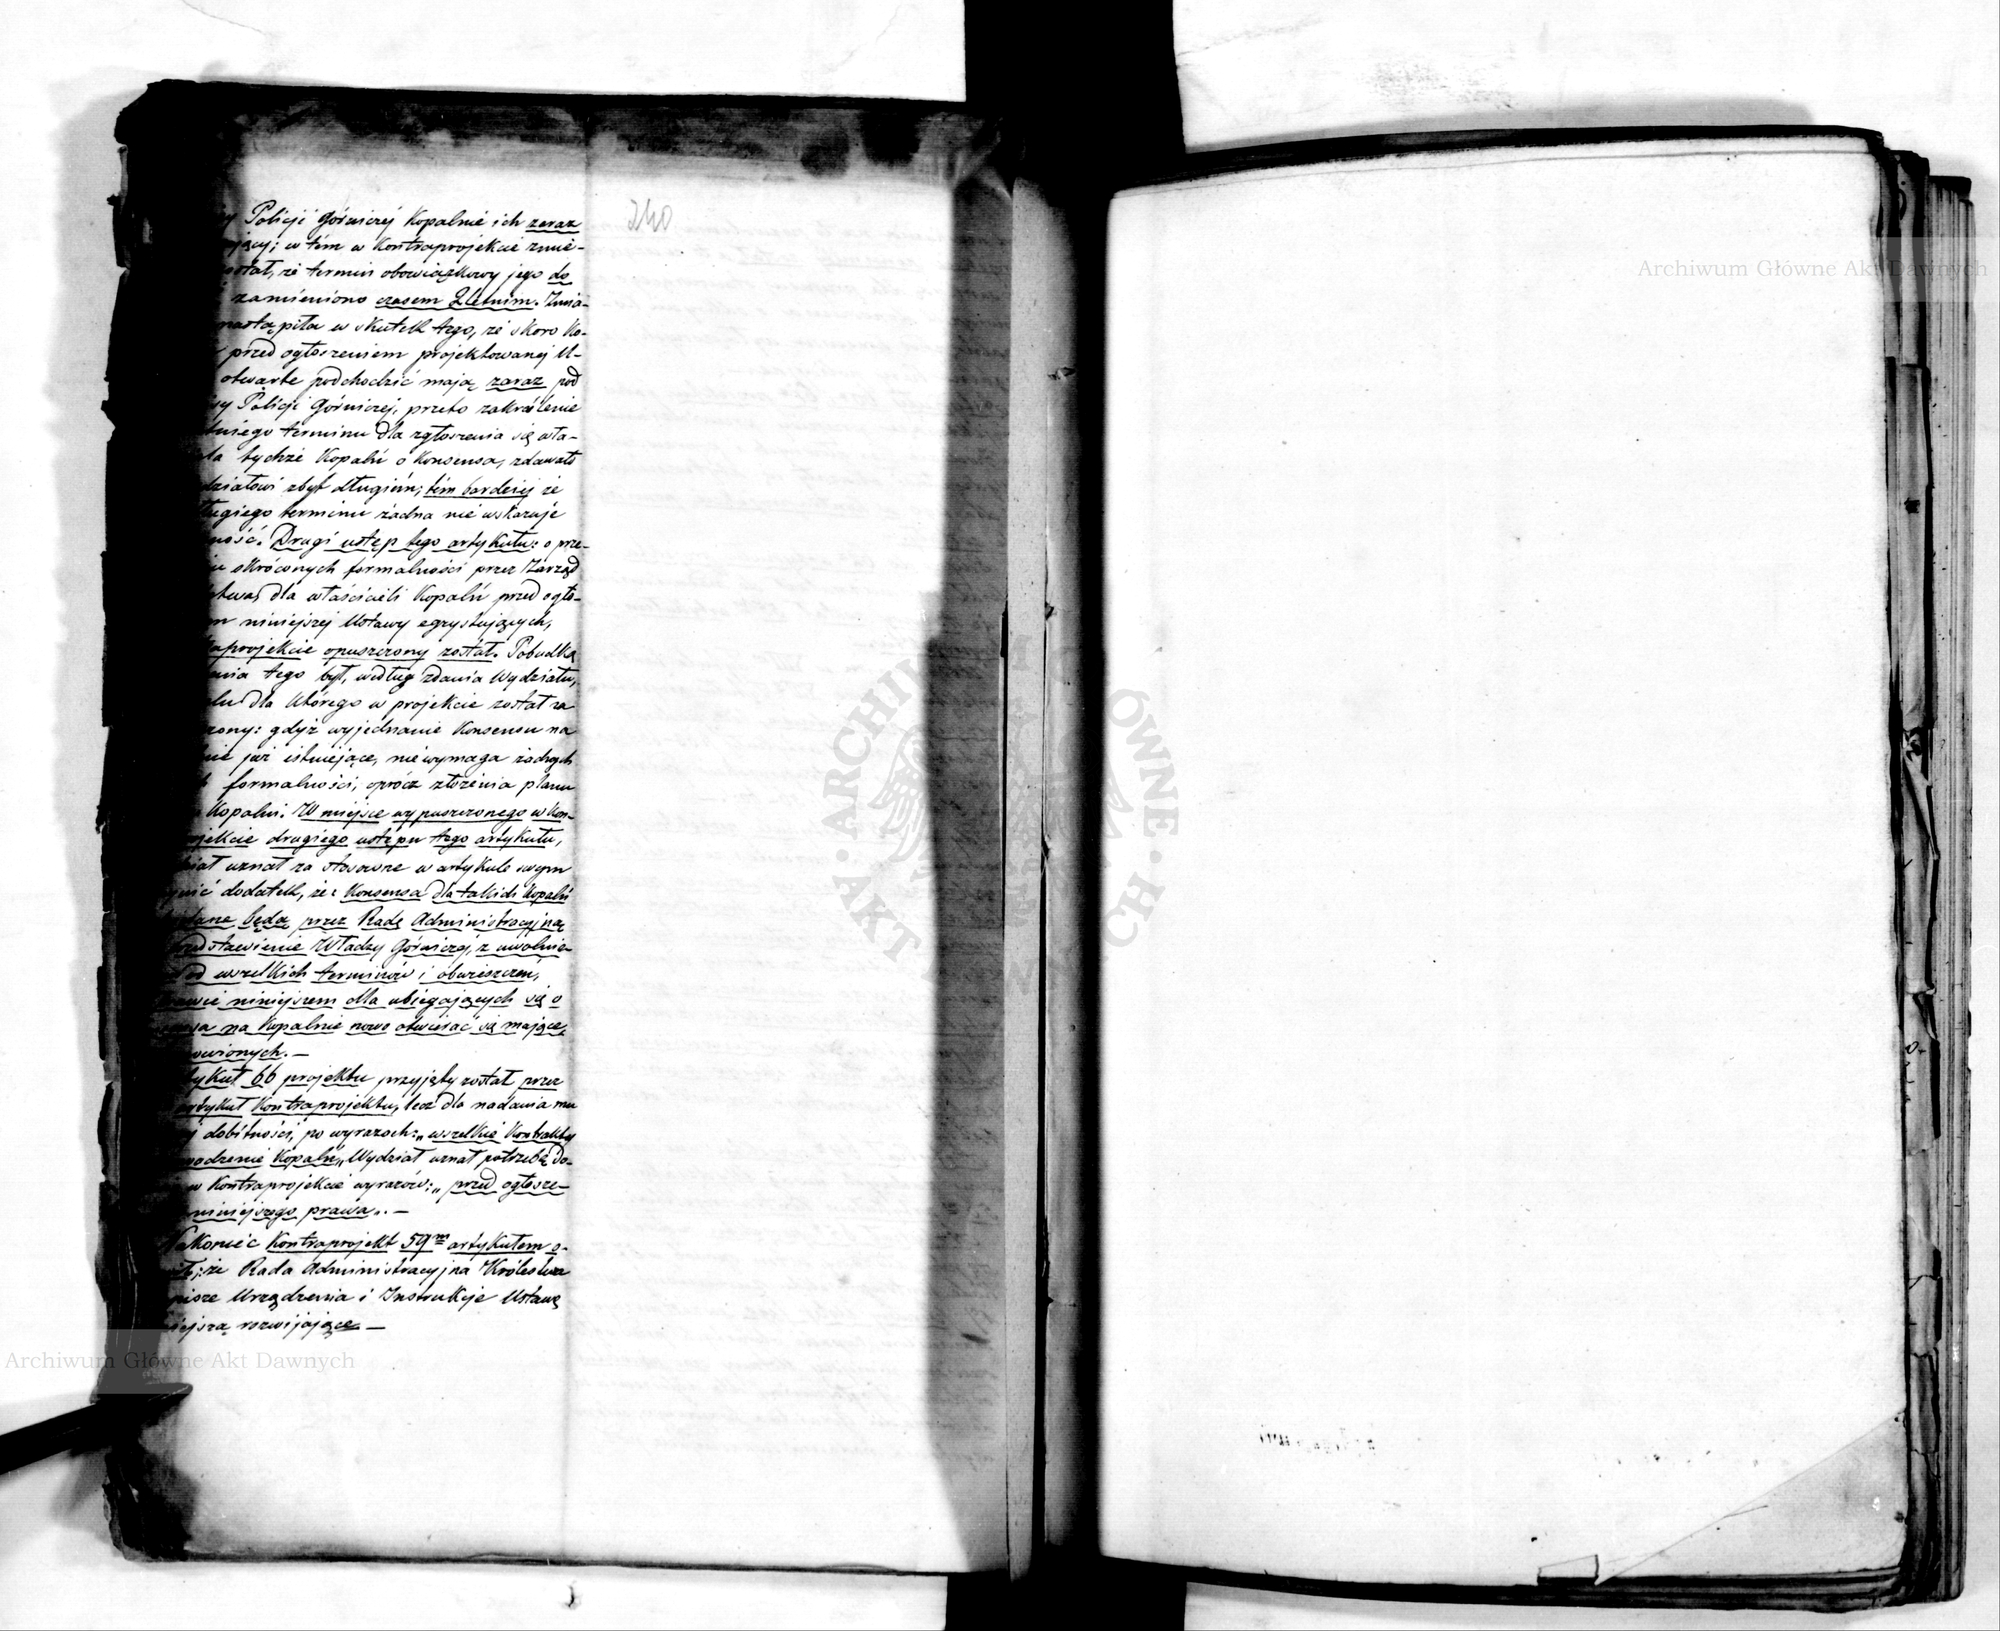 240
Policji Górniczéj Kopalnie ich zaraz
w tém w Kontraprojekcie zmie-
że termin obowiązkowy jego do
zamieniono czasem 2letnim. Zmia-
nastąpiła w skutek tego, że skoro Ko-
przed ogłoszeniem projektowanej U-
otwarte podchodzić mają zaraz pod
Policji Górniczej, przeto zakreślenie
terminu dla zgłoszenia się wła-
tychże Kopalń o Konsensa, zdawało
zbyt długiém; tém bardziej że
terminu żadna nie wskazuje
Drugi ustęp tego artykułu: o prze-
skróconych formalności przez Zarząd
dla właścicieli Kopalń przed ogło-
niniejszej Ustawy egzystujących,
opuszczony został. Pobudką
tego był, według zdania Wydziału,
dla którego w projekcie został za
gdyż wyjednanie Konsensu na
już istniejące, nie wymaga żadnych
formalności, oprócz złożenia planu
Kopalni. W miejsce wypuszczonego w Kon-
drugiego ustępu tego artykułu,
uznał za stosowne w artykule swym
dodatek, że: Konsensa dla takich Kopalń
będą przez Radę Administracyjną
Władzy Górniczej, z uwolnie-
od wszelkich terminów i obwieszczeń,
niniejszem dla ubiegających się o
na Kopalnie nowo otwierać się mające,
66 projektu przyjęty został przez
artykuł Kontraprojektu, lecz dla nadania mu
dobitności, po wyrazach: „wszelkie Kontrakty
Kopalń„ Wydział uznał potrzebę do-
w Kontraprojekcie wyrazów: „przed ogłosze-
niniejszego prawa„. —
Nakoniec Kontraprojekt 59m artykułem o-
że Rada Administracyjna Królestwa
Urządzenia i Instrukcje Ustawę
rozwijające —
Archiwum Główne Akt Dawnych
Archiwum Główne Akt Dawnych
ARCHIWUM GŁÓWNE AKT DAWNYCH